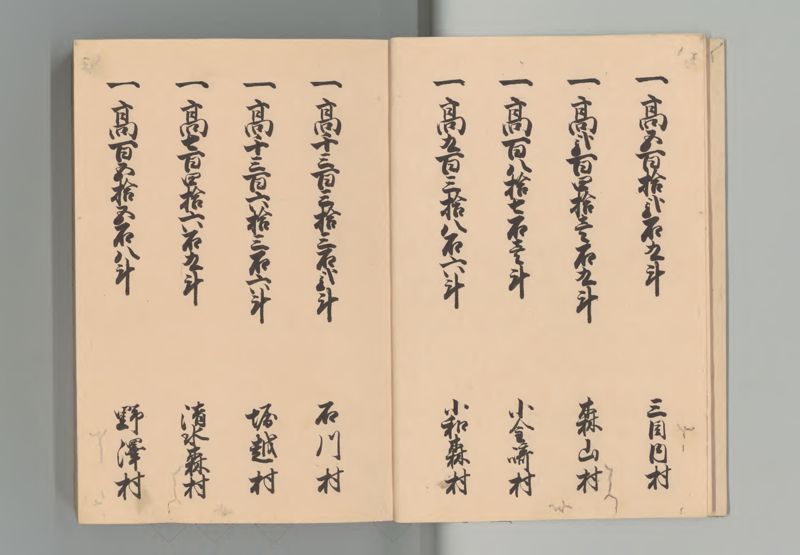 一高五百拾弐石九斗 三目内村
一高弐百四拾壱石九斗 森山村
一高百八拾七石壱斗 小金崎村
一高九百三拾八石六斗 小和森村
一高千三百三拾三石弐斗 石川村
一高千三百六拾三石六斗 堀越村
一高七百四拾六石九斗 清水森村
一高百五拾五石八斗 野澤村